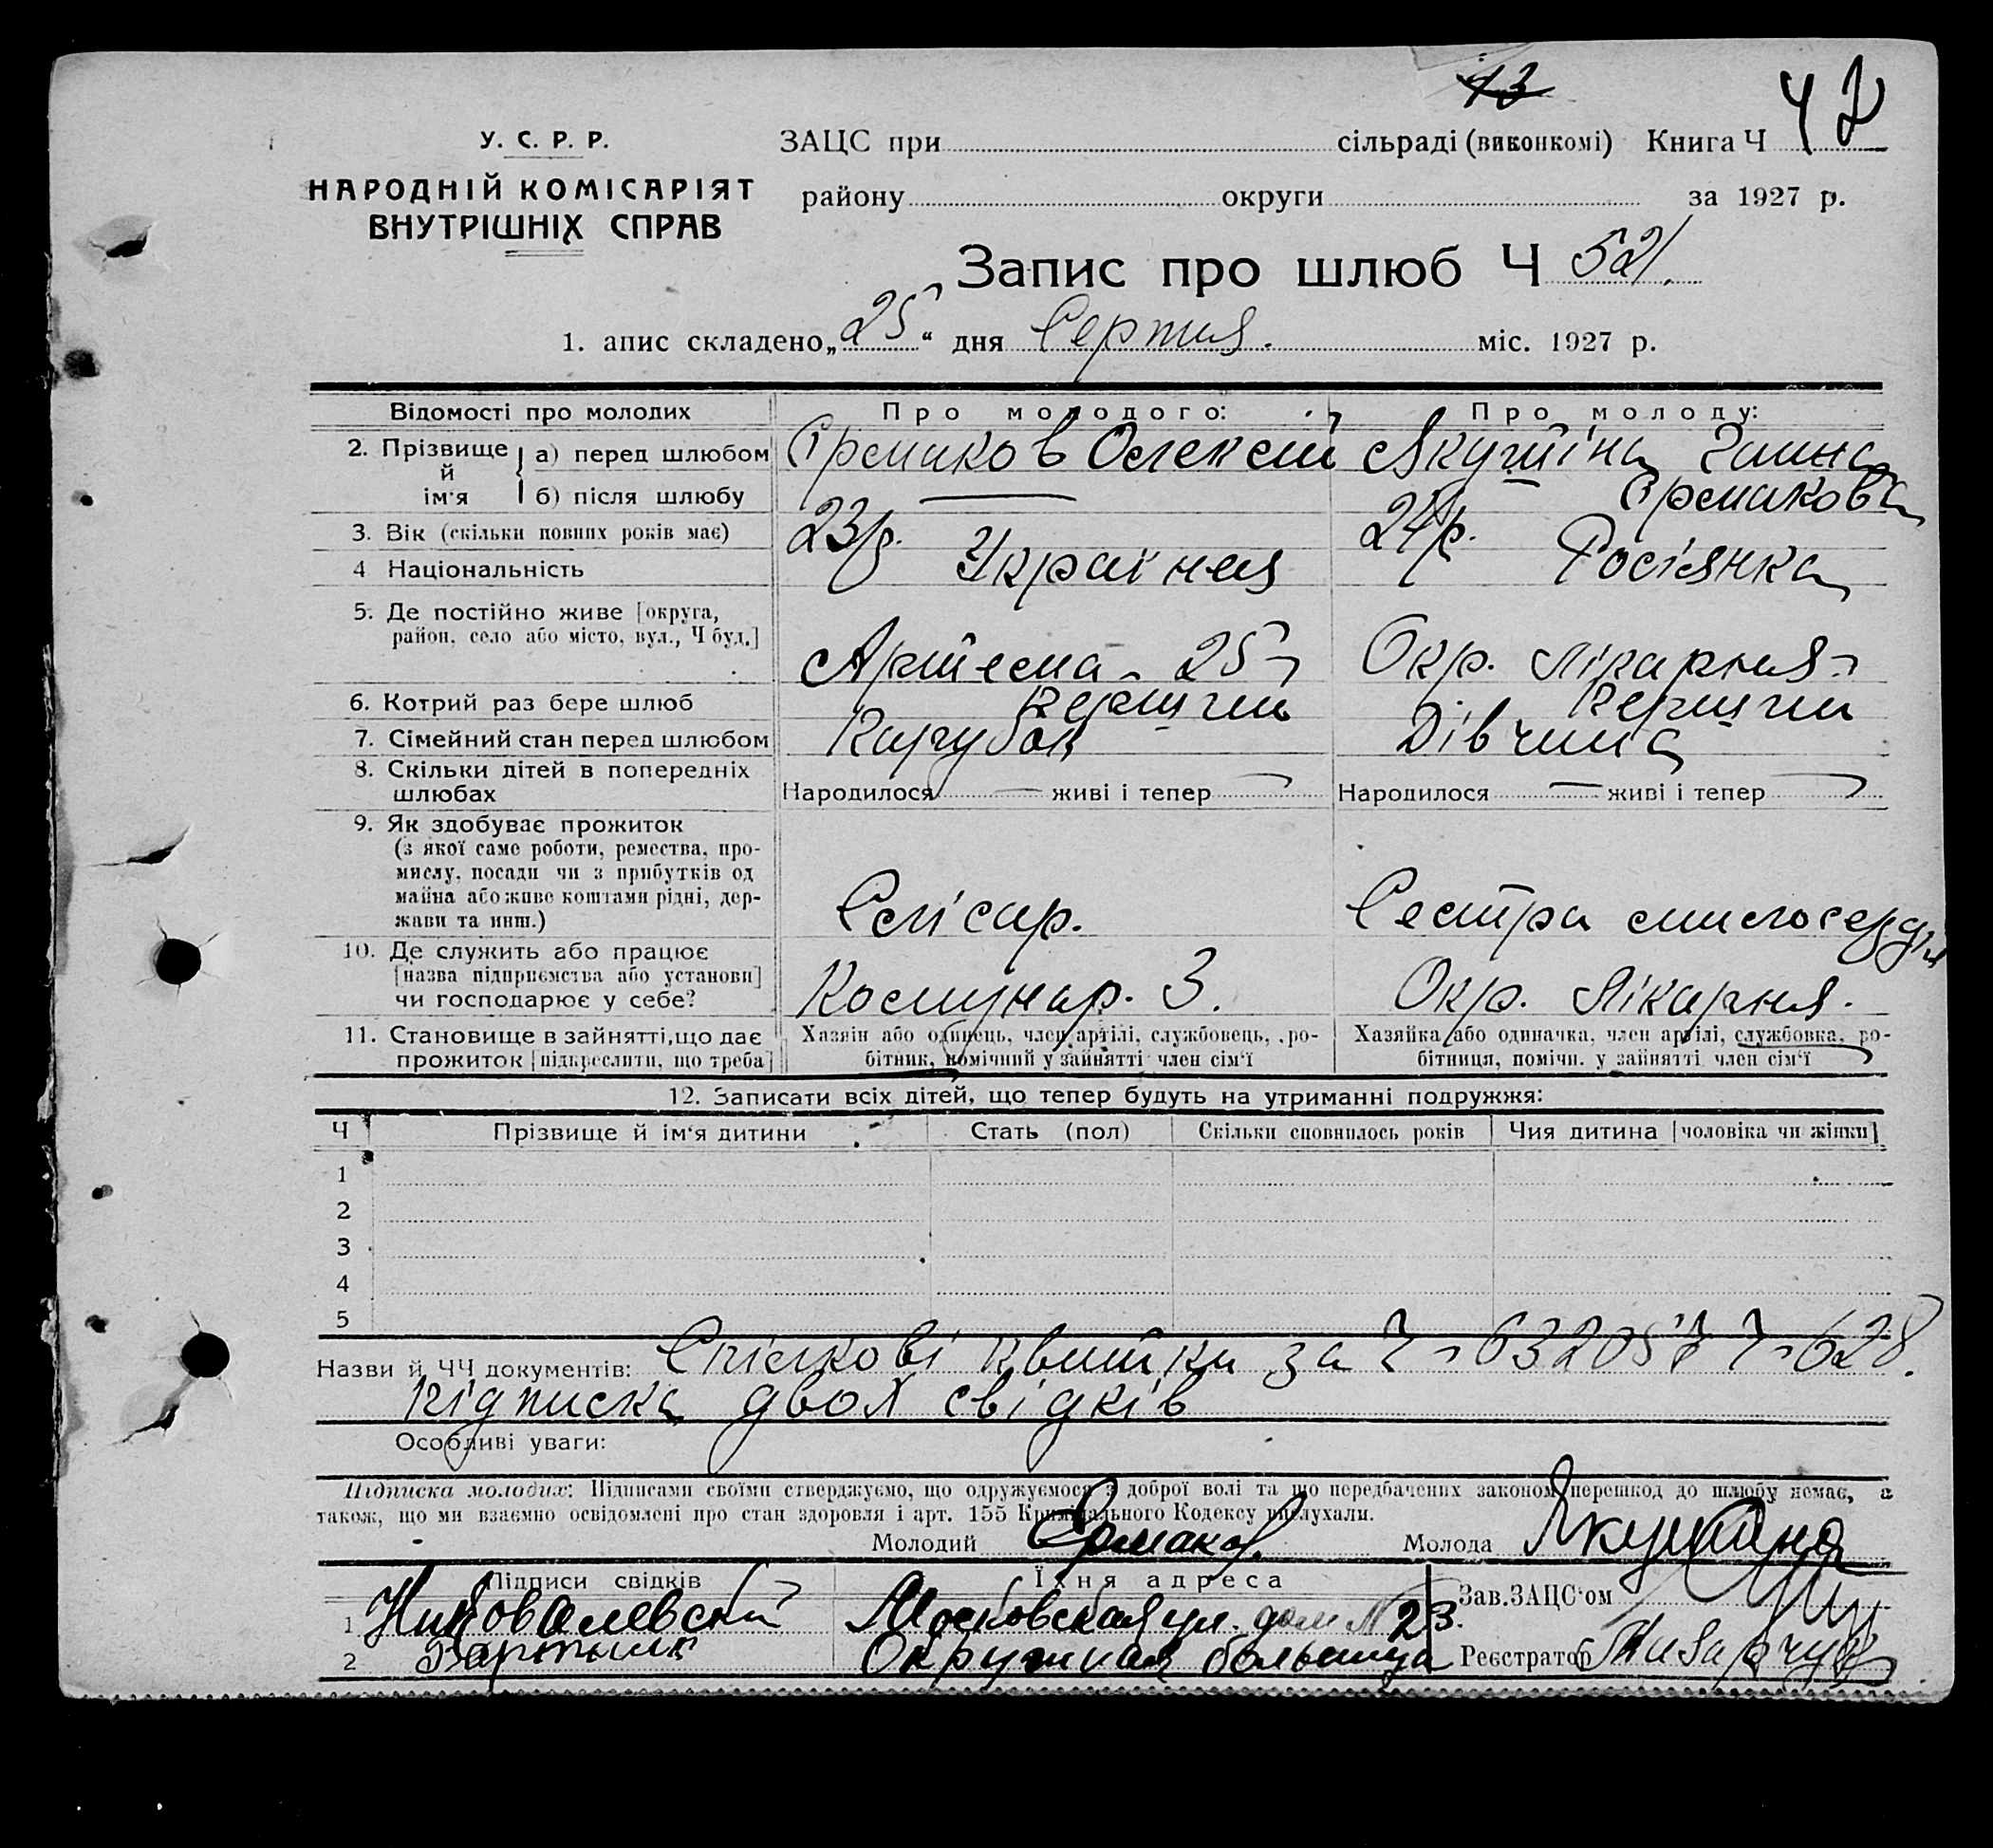 13
У. С. Р. Р.
НАРОДНІЙ КОМІСАРІЯТ
ВНУТРІШНІХ СПРАВ
ЗАЦС при сільраді (виконкомі) Книга Ч 42
району округи за 1927 р.
Запис про шлюб Ч 521.
1. апис складено „25“ дня Серпня. міс. 1927 р.
Відомості про молодих Про молодого: Про молоду:
2. Прізвище й ім'я а) перед шлюбом Єрмаков Олексій Якушіна Ганна
б) після шлюбу — Єрмакова
3. Вік (скільки повних років має) 23 р. 24 р.
4 Національність Українец Росіянка
5. Де постійно живе [округа,
район, село або місто, вул., Ч буд.] Артема 25 Окр. Лікарня
6. Котрий раз бере шлюб Перший Перший
7. Сімейний стан перед шлюбом Парубок Дівчина
8. Скільки дітей в попередніх
шлюбах Народилося — живі і тепер Народилося — живі і тепер
9. Як здобуває прожиток
(з якої саме роботи, ремества, про-
мислу, посади чи з прибутків од
майна або живе коштами рідні, дер-
жави та инш.) Слісар. Сестра милосердія
10. Де служить або працює
[назва підприємства або установи]
чи господарює у себе? Комунар. З. Окр. Лікарня.
11. Становище в зайнятті, що дає
прожиток [підкреслити, що треба]
Хазяін або одинець, член артілі, службовець, ро-
бітник, помічний у зайнятті член сім'ї
Хазяйка або одиначка, член артілі, службовка, ро-
бітниця, помічн. у зайнятті член сім'ї
12. Записати всіх дітей, що тепер будуть на утриманні подружжя:
Ч Прізвище й ім'я дитини Стать (пол) Скільки сповнилось років Чия дитина [чоловіка чи жінки]
1
2
3
4
5
Назви й ЧЧ документів: Спілкові квитки за Ч 628.
Підписка двох свідків
Особливі уваги:
Підписка молодих: Підписами своїми стверджуємо, що одружуємося з доброї волі та що передбачених законом перешкод до шлюбу немає, а
також, що ми взаємно освідомлені про стан здоровля і арт. 155 Кримінального Кодексу вислухали.
Молодий Ермаков. Молода Якушина
Підписи свідків Їхня адреса Зав.ЗАЦС'ом
1 Московская ул. дом № 23.
2 Окружная больница Реєстратор